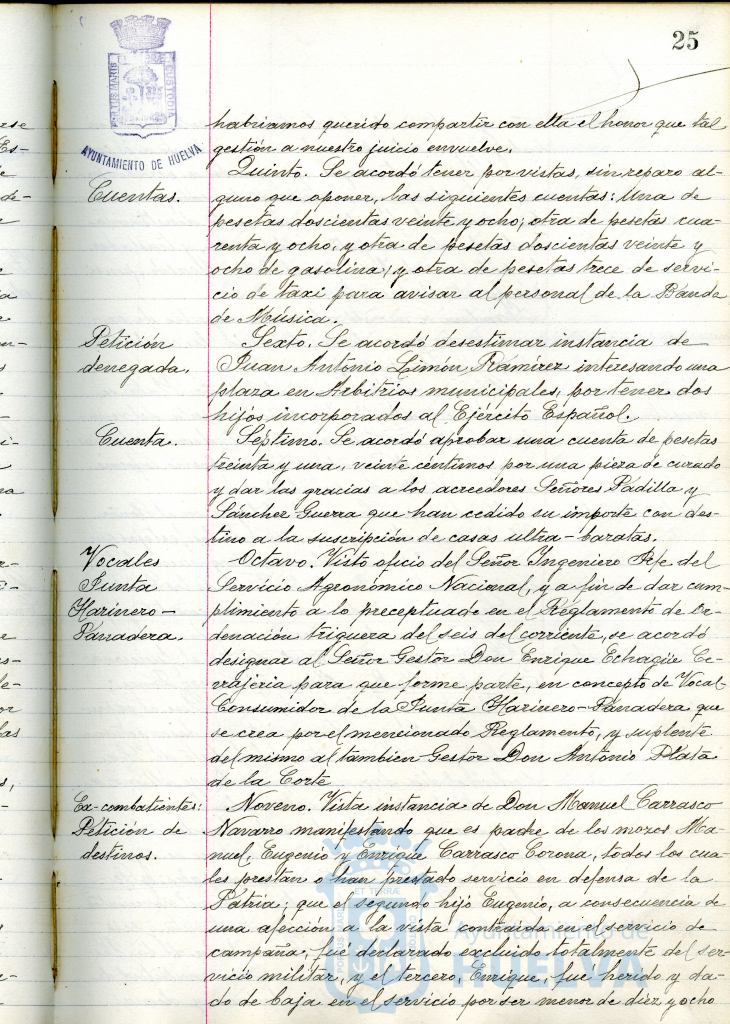 25
PORTUS MARIS ET TERRAE CUSTODIA
AYUNTAMIENTO DE HUELVA
habriamos querido compartir con ella el honor que tal
gestión a nuestro juicio envuelve.
Cuentas.
Quinto. Se acordó tener por vistas, sin reparo al-
guno que oponer, las siguientes cuentas: Una de
pesetas doscientas veinte y ocho; otra de pesetas cua-
renta y ocho, y otra de pesetas doscientas veinte y
ocho de gasolina; y otra de pesetas trece de servi-
cio de taxi para avisar al personal de la Banda
de Música.
Petición
denegada.
Sexto. Se acordó desestimar instancia de
Juan Antonio Limón Ramírez interesando una
plaza en Arbitrios municipales, por tener dos
hijos incorporados al Ejército Español.
Cuenta.
Séptimo. Se acordó aprobar una cuenta de pesetas
treinta y una, veinte céntimos por una pieza de curado
y dar las gracias a los acreedores Señores Padilla y
Sánchez-Guerra que han cedido su importe con des-
tino a la suscripción de casas ultra-baratas.
Vocales
Junta
Harinero-
Panadera.
Octavo. Visto oficio del Señor Ingeniero Jefe del
Servicio Agronómico Nacional, y a fin de dar cum-
plimiento a lo preceptuado en el Reglamento de Or-
denación triguera del seis del corriente, se acordó
designar al Señor Gestor Don Enrique Echagüe Ce-
rrajeria para que forme parte, en concepto de Vocal-
Consumidor de la Junta Harinero-Panadera que
se crea por el mencionado Reglamento, y suplente
del mismo al tambien Gestor Don Antonio Plata
de la Corte
Ex-combatientes:
Petición de
destinos.
Noveno. Vista instancia de Don Manuel Carrasco
Navarro manifestando que es padre de los mozos Ma-
nuel, Eugenio y Enrique Carrasco Corona, todos los cua-
les prestan o han prestado servicio en defensa de la
Patria; que el segundo hijo Eugenio, a consecuencia de
una afección a la vista contraida en el servicio de
campaña, fue declarado excluido totalmente del ser-
vicio militar, y el tercero, Enrique, fué herido y da-
do de baja en el servicio por ser menor de diez y ocho
Ayuntamiento de
HUELVA